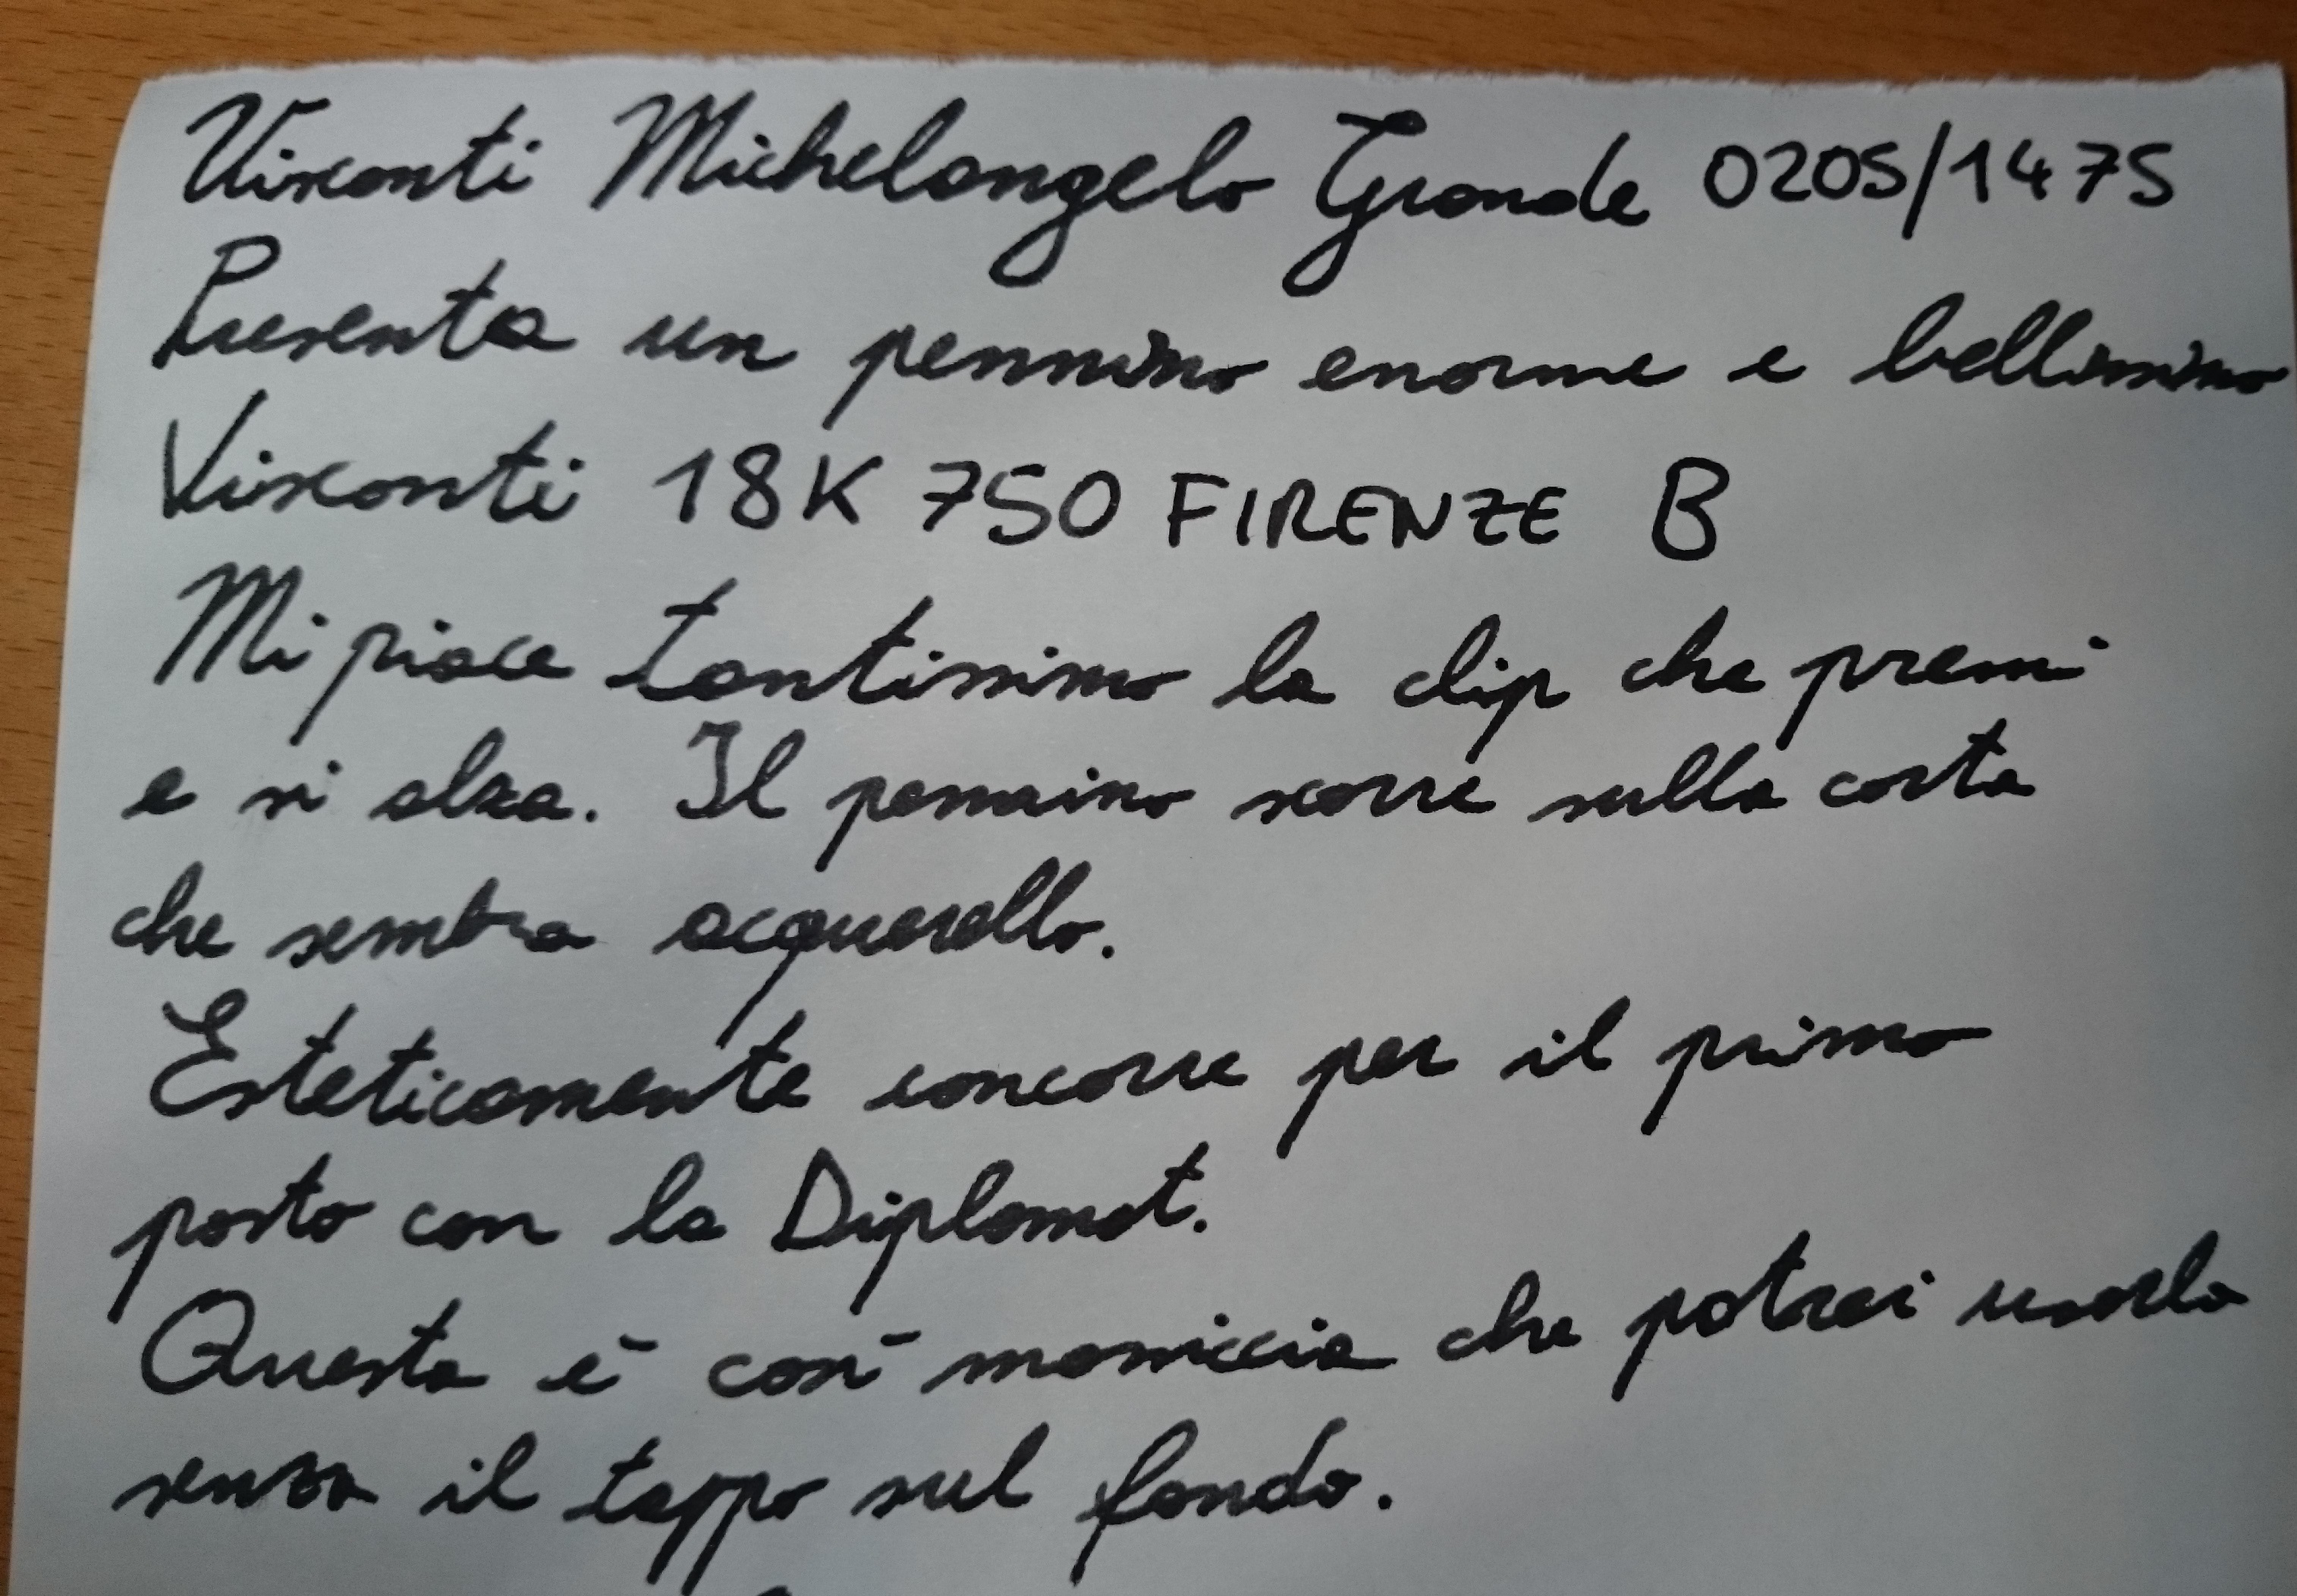 Visconti Michelangelo Grande 0205/1475
Presenta un pennino enorme e bellissimo
Visconti 18K 750 FIRENZE B
Mi piace tantissimo la clip che premi
e si alza. Il pennino scorre sulla carta
che sembra acquerello.
Esteticamente concorre per il primo
posto con la Diplomat.
Questa è così massiccia che potrei usarla
senza il tappo sul fondo.